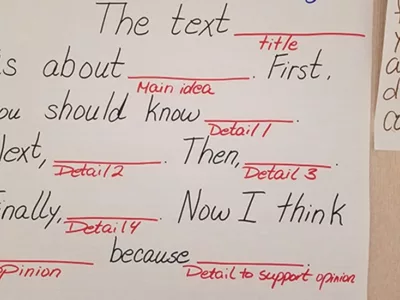 The text
title
is about . First,
Main idea
you should know .
Detail 1
Next, . Then, .
Detail 2 Detail 3
Finally, . Now I think
Detail 4
because .
opinion Detail to support opinion